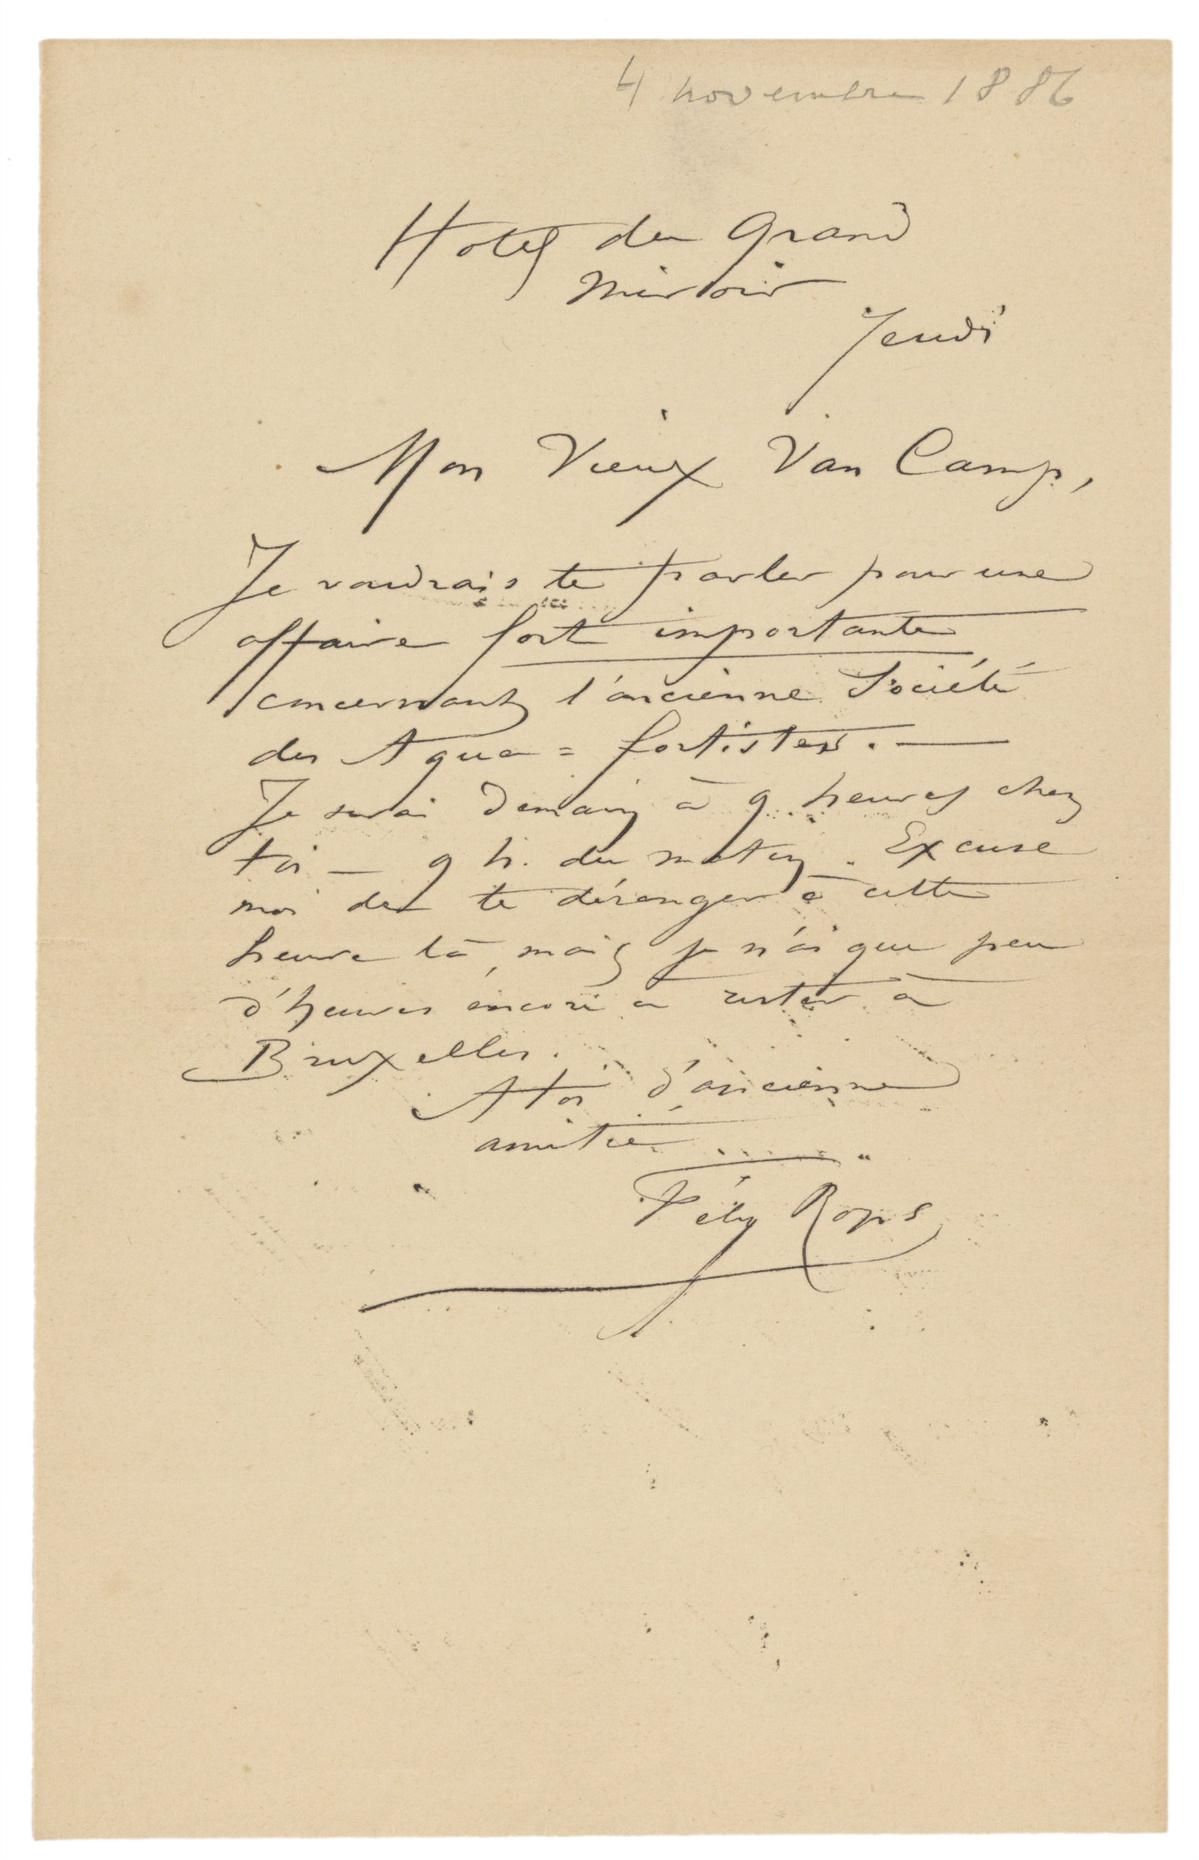 4 novembre 1886
Hotel du Grand
Miroir
Jeudi
Mon Vieux Van Camp,
Je voudrais te parler pour une
affaire fort importante
concernant l'ancienne Société
des Aqua=fortistes. —
Je serai demain à 9 heures chez
toi — 9 h. du matin. Excuse
moi de te déranger à cette
heure là, mais je n'ai que peu
d'heures encore à rester à
Bruxelles.
A toi d'ancienne
amitié
Fély Rops